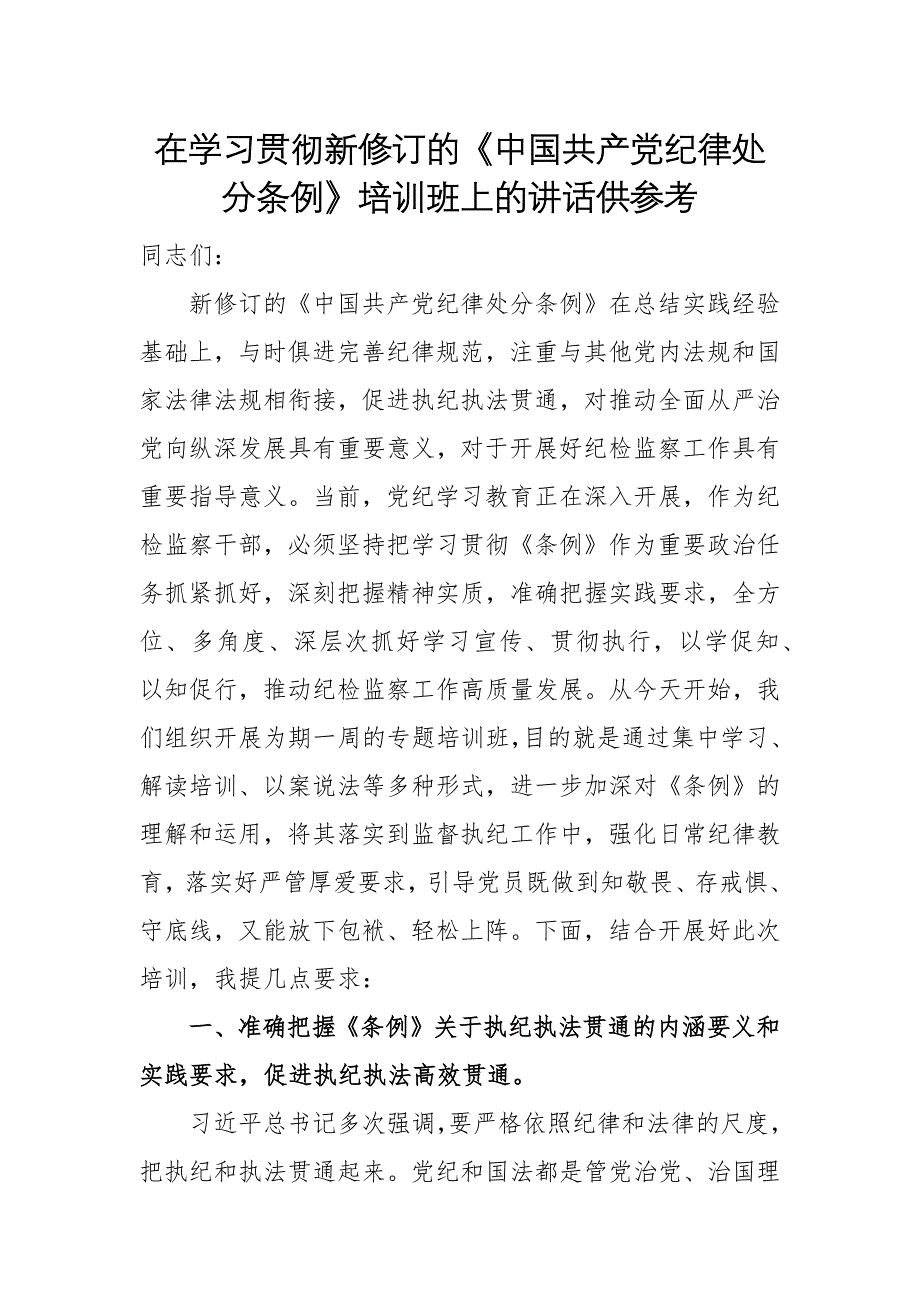 在学习贯彻新修订的《中国共产党纪律处
分条例》培训班上的讲话供参考
同志们：
新修订的《中国共产党纪律处分条例》在总结实践经验
基础上，与时俱进完善纪律规范，注重与其他党内法规和国
家法律法规相衔接，促进执纪执法贯通，对推动全面从严治
党向纵深发展具有重要意义，对于开展好纪检监察工作具有
重要指导意义。当前，党纪学习教育正在深入开展，作为纪
检监察干部，必须坚持把学习贯彻《条例》作为重要政治任
务抓紧抓好，深刻把握精神实质，准确把握实践要求，全方
位、多角度、深层次抓好学习宣传、贯彻执行，以学促知、
以知促行，推动纪检监察工作高质量发展。从今天开始，我
们组织开展为期一周的专题培训班，目的就是通过集中学习、
解读培训、以案说法等多种形式，进一步加深对《条例》的
理解和运用，将其落实到监督执纪工作中，强化日常纪律教
育，落实好严管厚爱要求，引导党员既做到知敬畏、存戒惧、
守底线，又能放下包袱、轻松上阵。下面，结合开展好此次
培训，我提几点要求：
一、准确把握《条例》关于执纪执法贯通的内涵要义和
实践要求，促进执纪执法高效贯通。
习近平总书记多次强调，要严格依照纪律和法律的尺度，
把执纪和执法贯通起来。党纪和国法都是管党治党、治国理